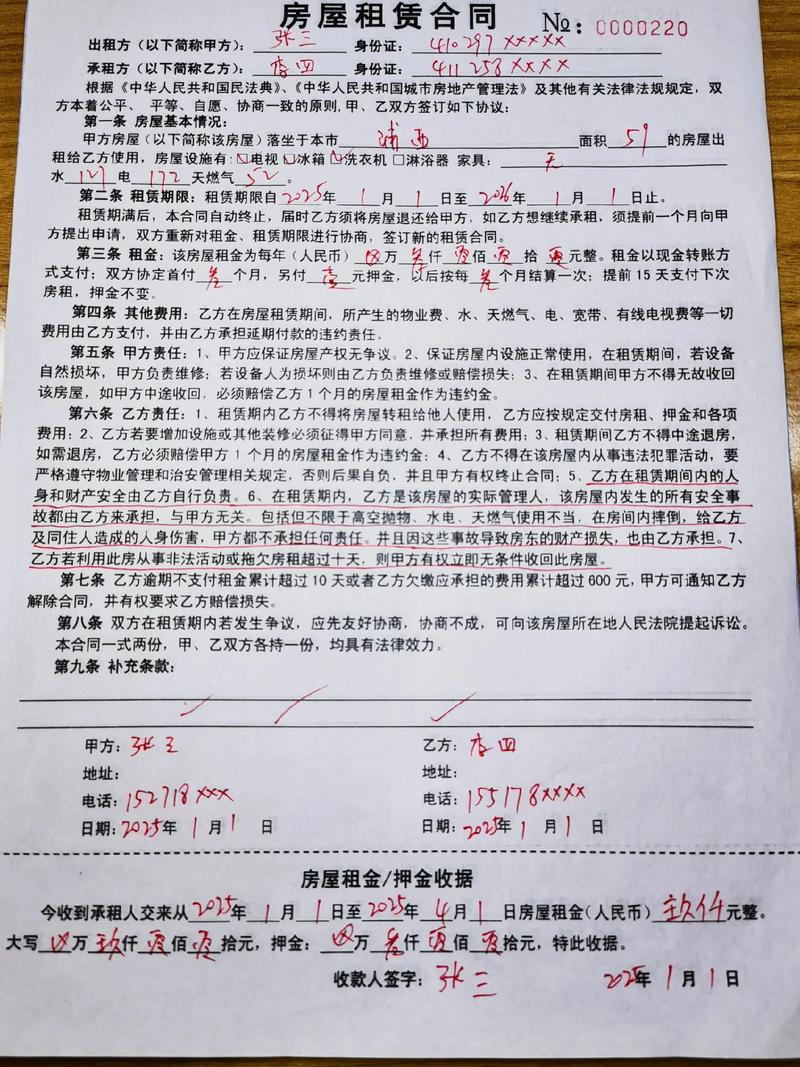 房屋租赁合同 №:0000220
出租方(以下简称甲方): 张三 身份证: 410297xxxxx
承租方(以下简称乙方): 李四 身份证: 411258xxxx
根据《中华人民共和国民法典》、《中华人民共和国城市房地产管理法》及其他有关法律法规规定,双
方本着公平、平等、自愿、协商一致的原则,甲、乙双方签订如下协议:
第一条 房屋基本情况:
甲方房屋(以下简称该房屋)落坐于本市 浦西 面积 59 的房屋出
租给乙方使用,房屋设施有:☑电视☑冰箱☑洗衣机□淋浴器 家具: 无
水 127 电 172 天燃气 52 。
第二条 租赁期限:租赁期限自 2025 年 1 月 1 日至 2026 年 1 月 1 日止。
租赁期满后,本合同自动终止,届时乙方须将房屋退还给甲方,如乙方想继续承租,须提前一个月向甲
方提出申请,双方重新对租金、租赁期限进行协商,签订新的租赁合同。
第三条 租金:该房屋租金为每年(人民币) 万 仟 佰 拾 元整。租金以现金转账方
式支付;双方协定首付 叁 个月,另付 壹 元押金,以后按每 叁 个月结算一次;提前15天支付下次
房租,押金不变。
第四条 其他费用:乙方在房屋租赁期间,所产生的物业费、水、天燃气、电、宽带、有线电视费等一切
费用由乙方支付,并由乙方承担延期付款的违约责任。
第五条 甲方责任:1、甲方应保证房屋产权无争议。2、保证房屋内设施正常使用,在租赁期间,若设备
自然损坏,甲方负责维修;若设备人为损坏则由乙方负责维修或赔偿损失;3、在租赁期间甲方不得无故收回
该房屋,如甲方中途收回,必须赔偿乙方1个月的房屋租金作为违约金。
第六条 乙方责任:1、租赁期内乙方不得将房屋转租给他人使用,乙方应按规定交付房租、押金和各项
费用;2、乙方若要增加设施或其他装修必须征得甲方同意,并承担所有费用;3、租赁期间乙方不得中途退房,
如需退房,乙方必须赔偿甲方1个月的房屋租金作为违约金;4、乙方不得在该房屋内从事违法犯罪活动,要
严格遵守物业管理和治安管理相关规定,否则后果自负,并且甲方有权终止合同;5、乙方在租赁期间内的人
身和财产安全由乙方自行负责。6、在租赁期内,乙方是该房屋的实际管理人,该房屋内发生的所有安全事
故都由乙方来承担,与甲方无关。包括但不限于高空抛物、水电、天燃气使用不当,在房间内摔倒,给乙方
及同住人造成的人身伤害,甲方都不承担任何责任。并且因这些事故导致房东的财产损失,也由乙方承担。7、
乙方若利用此房从事非法活动或拖欠房租超过十天,则甲方有权立即无条件收回此房屋。
第七条 乙方逾期不支付租金累计超过10天或者乙方欠缴应承担的费用累计超过600元,甲方可通知乙方
解除合同,并有权要求乙方赔偿损失。
第八条 双方在租赁期内若发生争议,应先友好协商,协商不成,可向该房屋所在地人民法院提起诉讼。
本合同一式两份,甲、乙双方各持一份,均具有法律效力。
第九条 补充条款:
甲方: 张三 乙方: 李四
地址: 地址:
电话: 152718xxx 电话: 155178xxxx
日期: 2025年 1 月 1 日 日期: 2025年 1 月 1 日
房屋租金/押金收据
今收到承租人交来从 2025 年 1 月 1 日至 2025 年 4 月 1 日房屋租金(人民币) 玖仟 元整。
大写 万 玖 仟 零 佰 零 拾元,押金: 万 叁 仟 零 佰 零 拾元,特此收据。
收款人签字: 张三 2025年 1 月 1 日